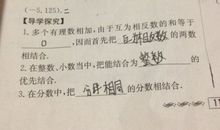 (-5.125).=
【导学探究】
1.多个有理数相加,由于互为相反数的和等于
0,因而首先把互为相反数的两数
相结合.
2.在整数、小数当中,把能结合为整数的
优先结合.
3.在分数中,把分母相同的分数相结合.